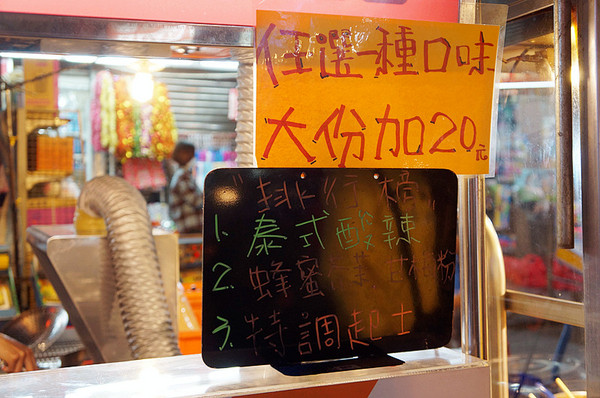 任選一種口味
大份加20元
"排行榜"
1. 泰式酸辣
2. 蜂蜜芥末 甘梅粉
3. 特調起士